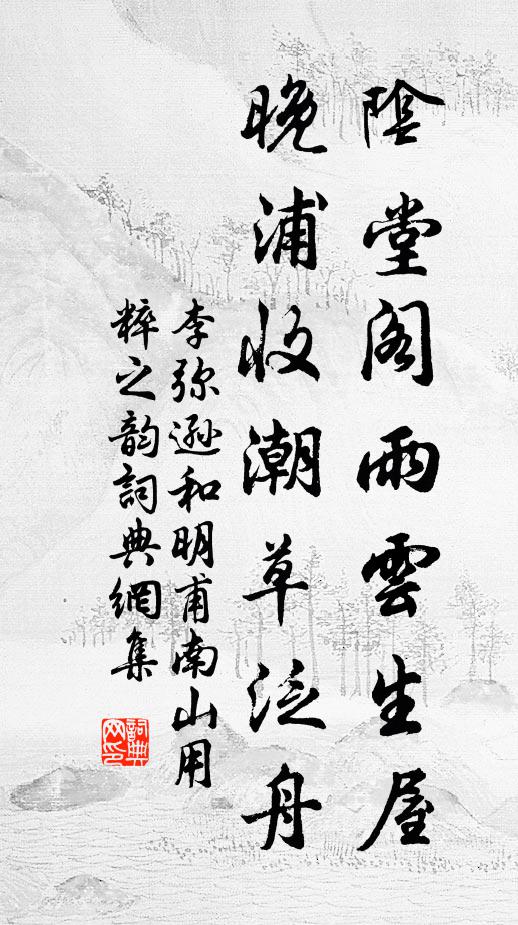 陰堂閣雨雲生屋
晚浦收潮草泛舟
李弥遜和明甫南山用
粹之韵詞典網集
詞典
网印